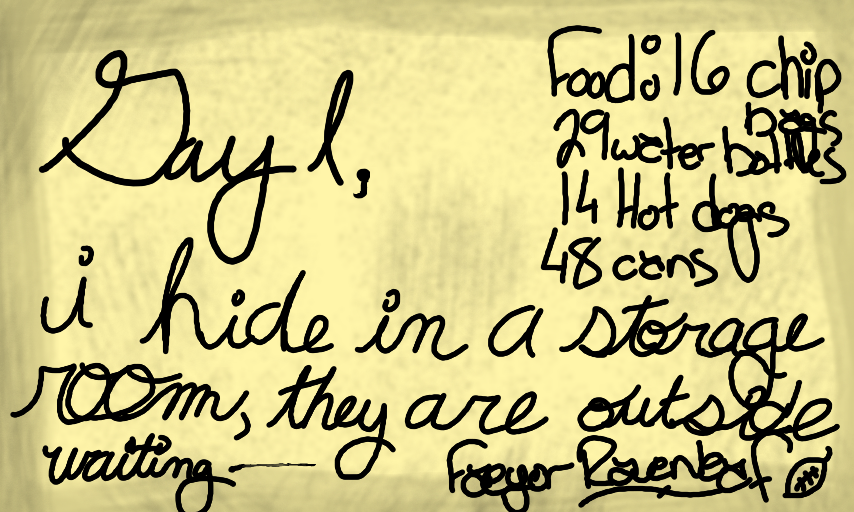 Day 1,
Food: 16 chip
bags
29 water bottles
14 Hot dogs
48 cans
i hide in a storage
room, they are outside
waiting —
Faeyor Ravenleaf